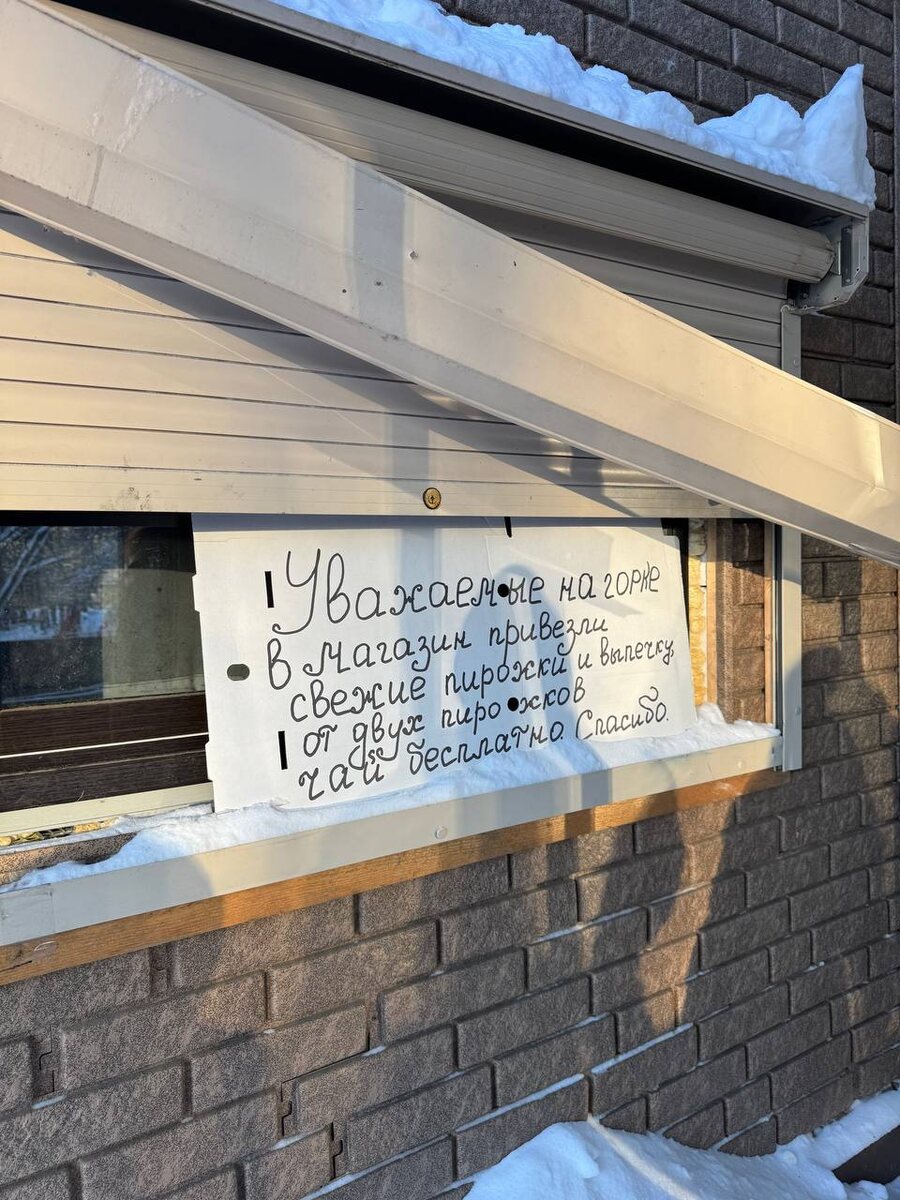 Уважаемые на горке
в магазин привезли
свежие пирожки и выпечку,
от двух пирожков
чай бесплатно. Спасибо.